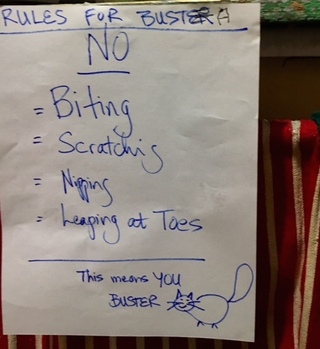 RULES FOR BUSTER
NO
= Biting
= Scratching
= Nipping
= Leaping at Toes
This means YOU
BUSTER